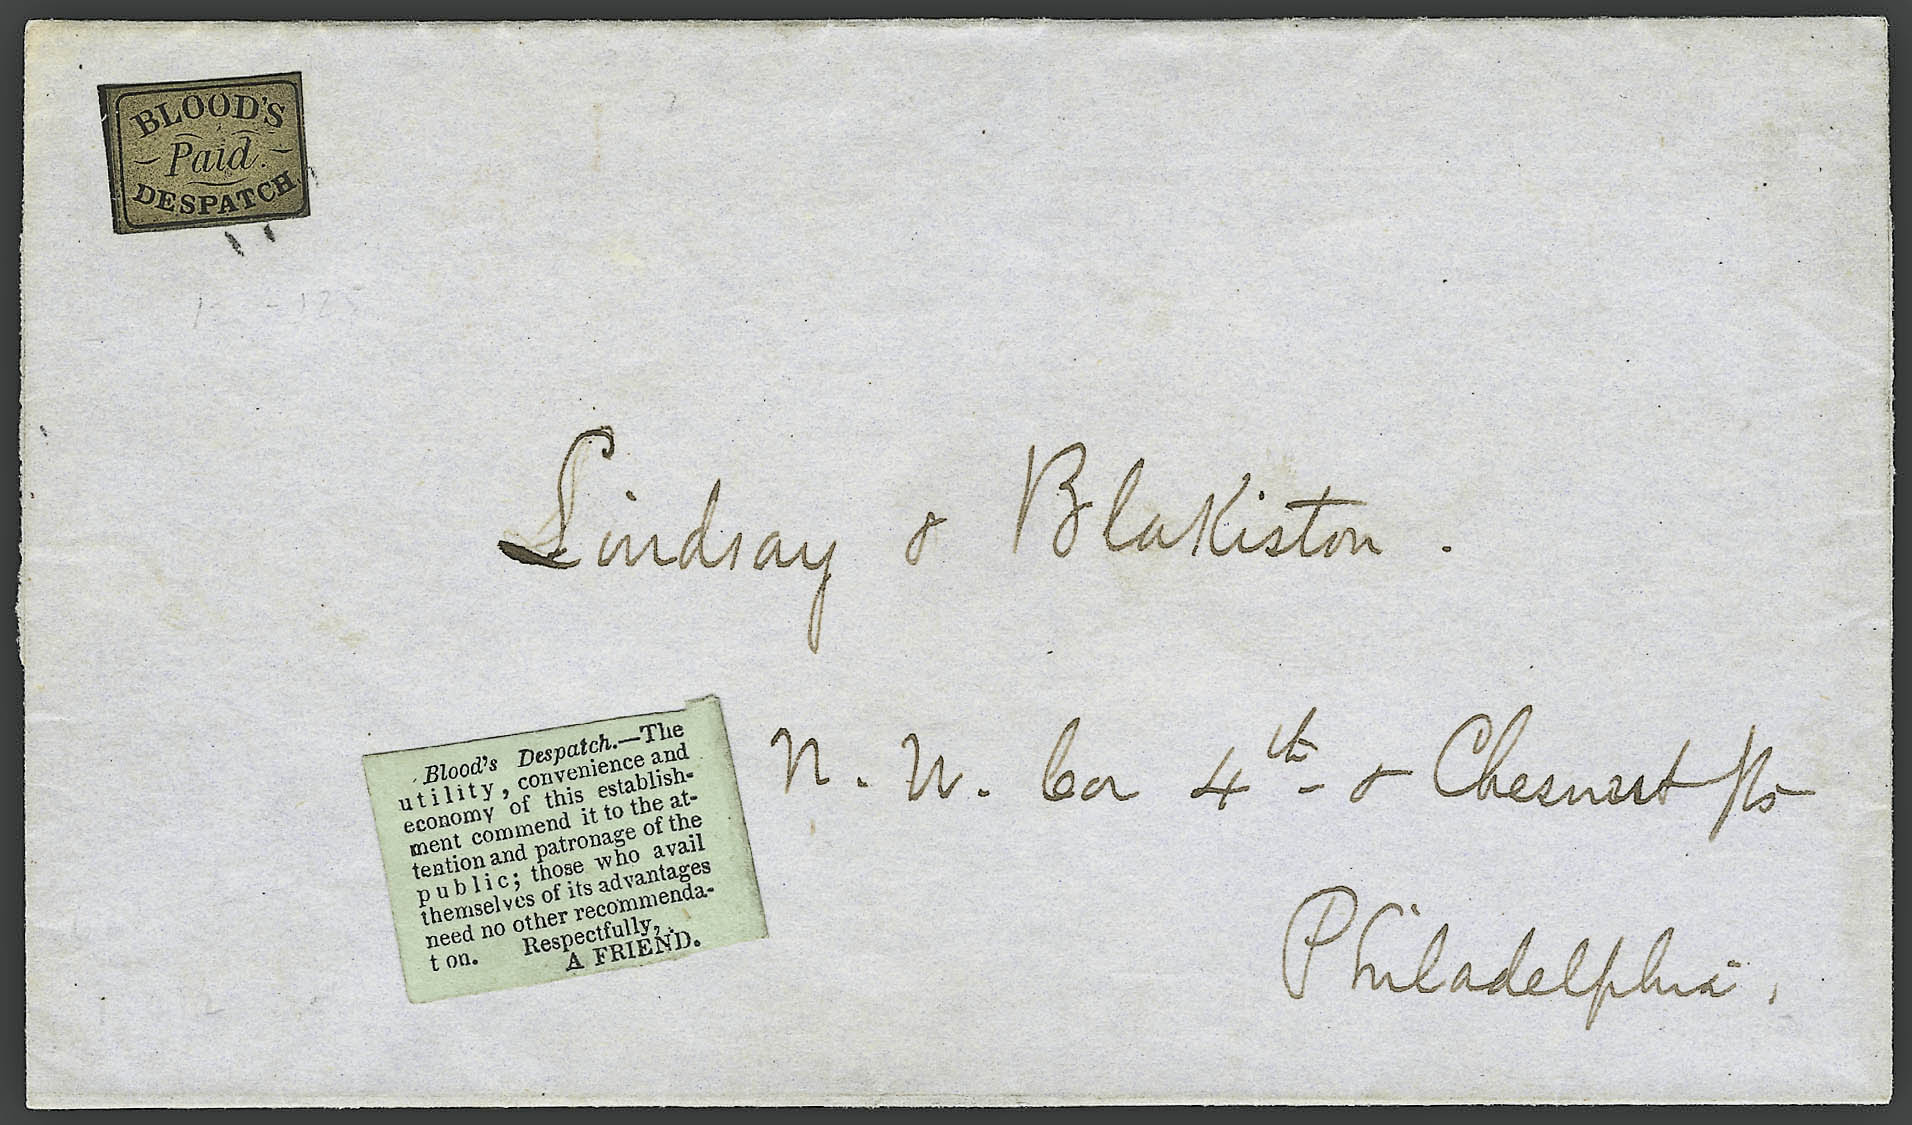 BLOOD'S
Paid.
DESPATCH
Lindsay & Blakiston.
N. W. Cor 4th & Chesnut
Philadelphia,
Blood's Despatch.—The
utility, convenience and
economy of this establish-
ment commend it to the at-
tention and patronage of the
public; those who avail
themselves of its advantages
need no other recommenda-
t on. Respectfully,
A FRIEND.